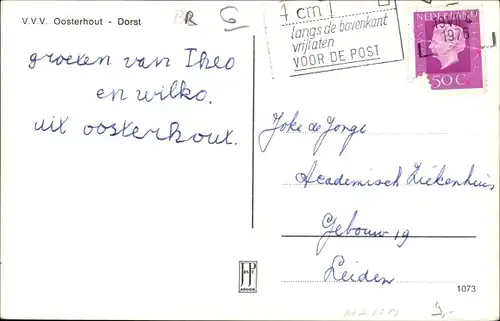 V.V.V. Oosterhout - Dorst
R 6
4 cm
langs de bovenkant
vrijlaten
VOOR DE POST
NEDERLAND
1976
50 C
groeten van Theo
en wilko.
uit oosterhout.
Joke de Jonge
Academisch Ziekenhuis
Gebouw 19
Leiden
1073